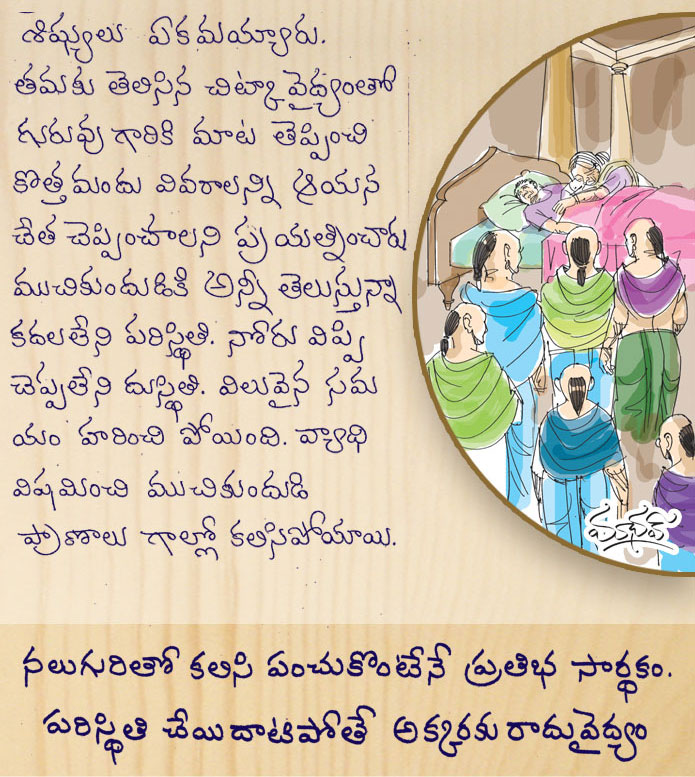 శిష్యులు ఏకమయ్యారు.
తమకు తెలిసిన చిట్కావైద్యంతో
గురువు గారికి మాట తెప్పించి
కొత్తమందు వివరాలన్ని ఆయన
చేత చెప్పించాలని ప్రయత్నించారు
ముచికుందుడికి అన్నీ తెలుస్తున్నా
కదలలేని పరిస్థితి. నోరు విప్పి
చెప్పలేని దుస్థితి. విలువైన సమ
యం హరించి పోయింది. వ్యాధి
విషమించి ముచికుందుడి
ప్రాణాలు గాల్లో కలిసిపోయాయి.
నలుగురితో కలిసి పంచుకొంటేనే ప్రతిభ సార్థకం.
పరిస్థితి చేయిదాటిపోతే అక్కరకు రాదువైద్యం